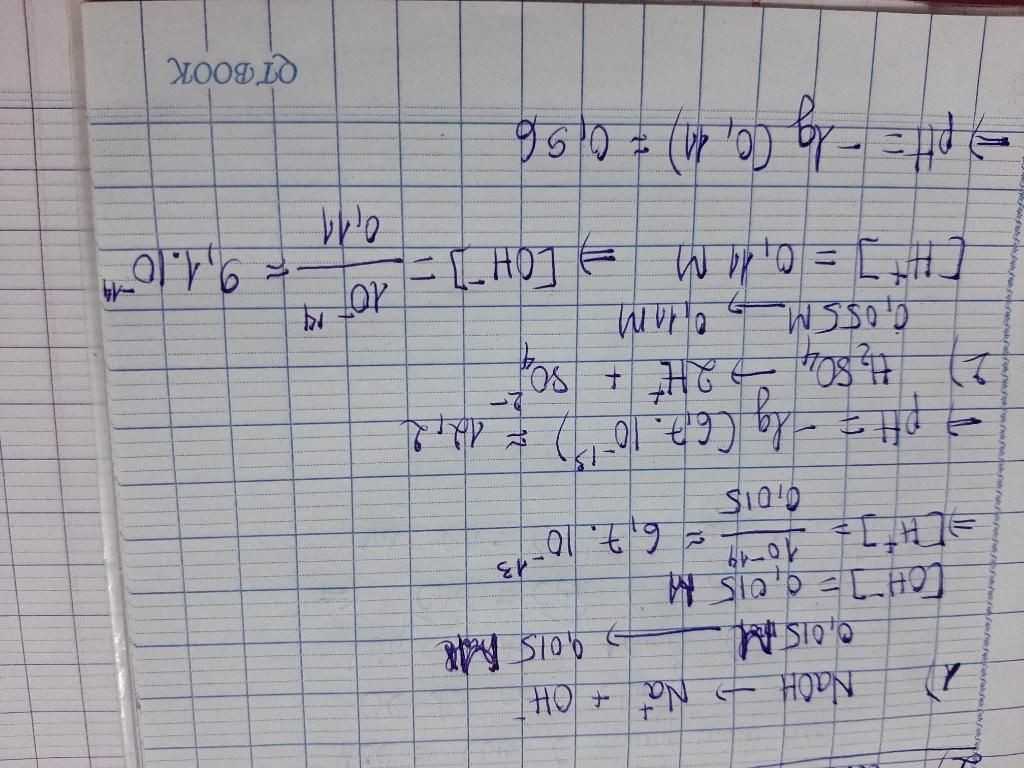 1) NaOH → Na⁺ + OH⁻
0,015 M → 0,015
[OH⁻] = 0,015 M
⇒ [H⁺] = 10⁻¹⁴ / 0,015 ≈ 6,7 . 10⁻¹³
⇒ pH = - lg (6,7 . 10⁻¹³) ≈ 12,2
2) H₂SO₄ → 2H⁺ + SO₄²⁻
0,055 M → 0,11 M
[H⁺] = 0,11 M ⇒ [OH⁻] = 10⁻¹⁴ / 0,11 ≈ 9,1.10⁻¹⁴
⇒ pH = - lg (0,11) ≈ 0,96
QTBOOK